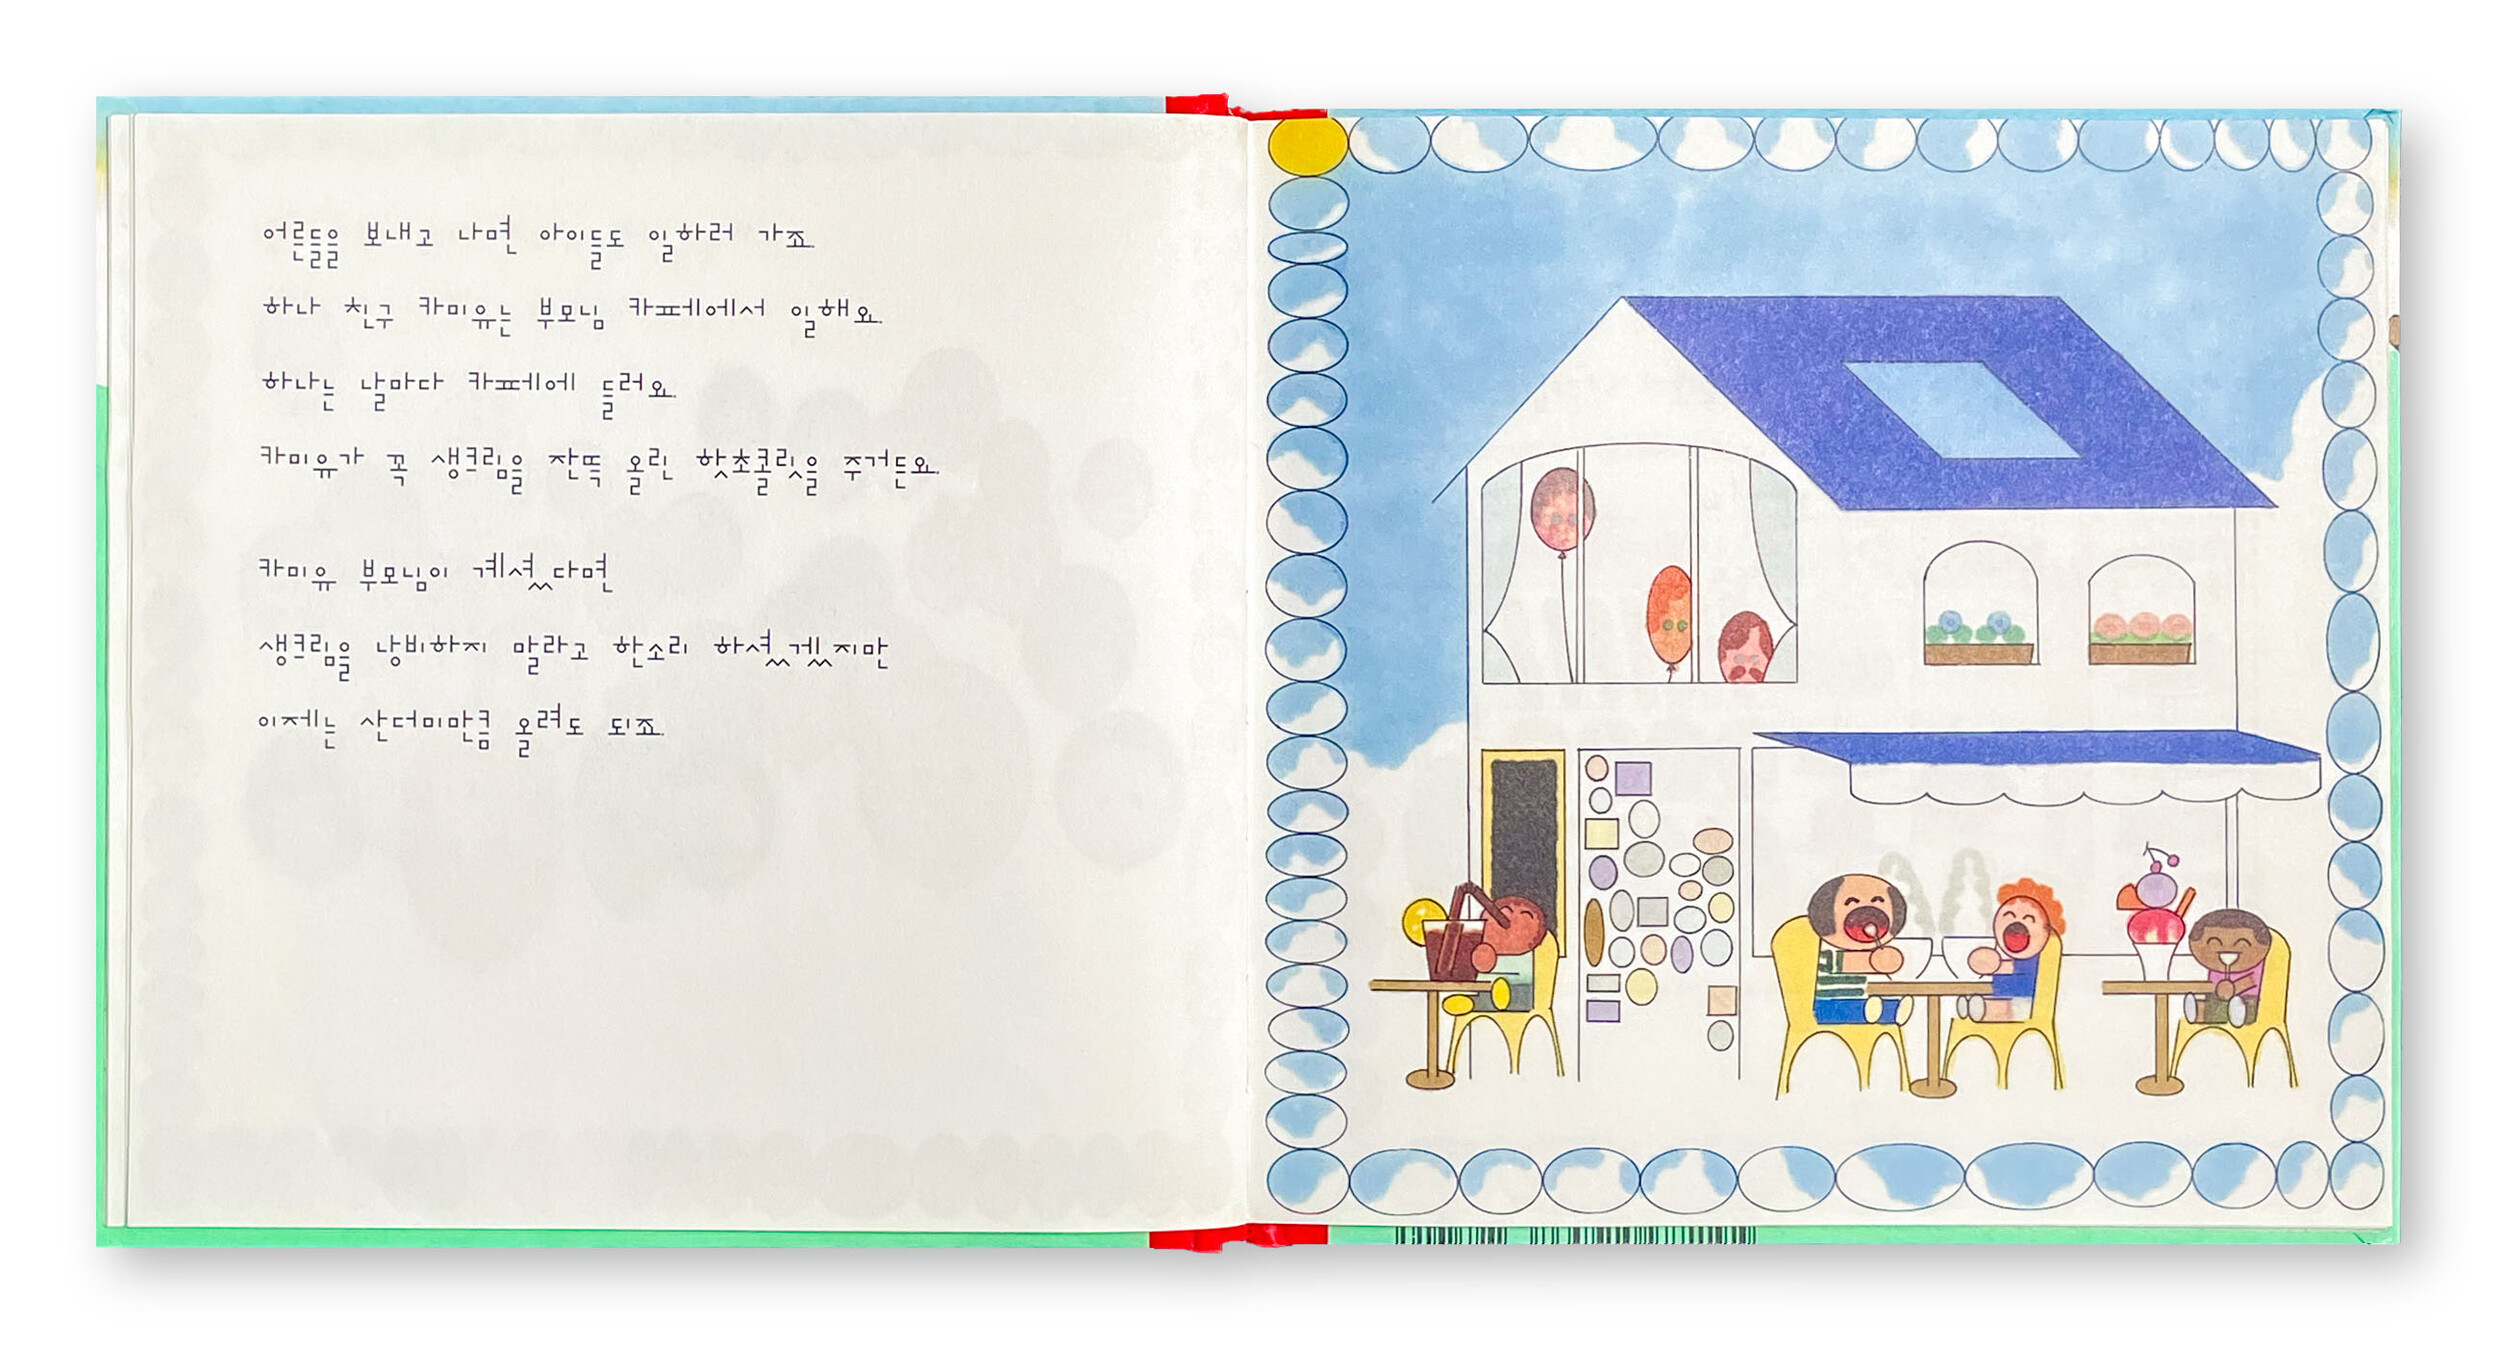 어른들을 보내고 나면 아이들도 일하러 가죠.
하나 친구 카미유는 부모님 카페에서 일해요.
하나는 날마다 카페에 들러요.
카미유가 꼭 생크림을 잔뜩 올린 핫초콜릿을 주거든요.
카미유 부모님이 계셨다면
생크림을 낭비하지 말라고 한소리 하셨겠지만
이제는 산더미만큼 올려도 되죠.